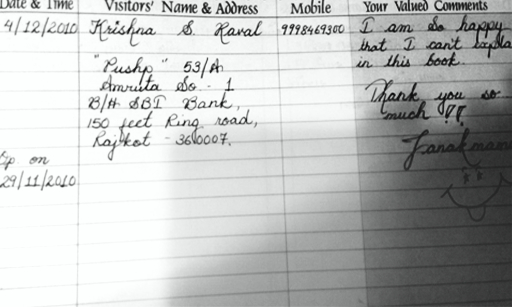 Date & Time Visitors' Name & Address Mobile Your Valued Comments
4/12/2010 Krishna S. Raval 9998469300 I am so happy
that I can't
in this book.
"Pushp" 53/A
Amruta So. 1
B/H SBI Bank,
150 feet Ring road,
Rajkot - 360007.
Thank you so
much !!
on
29/11/2010